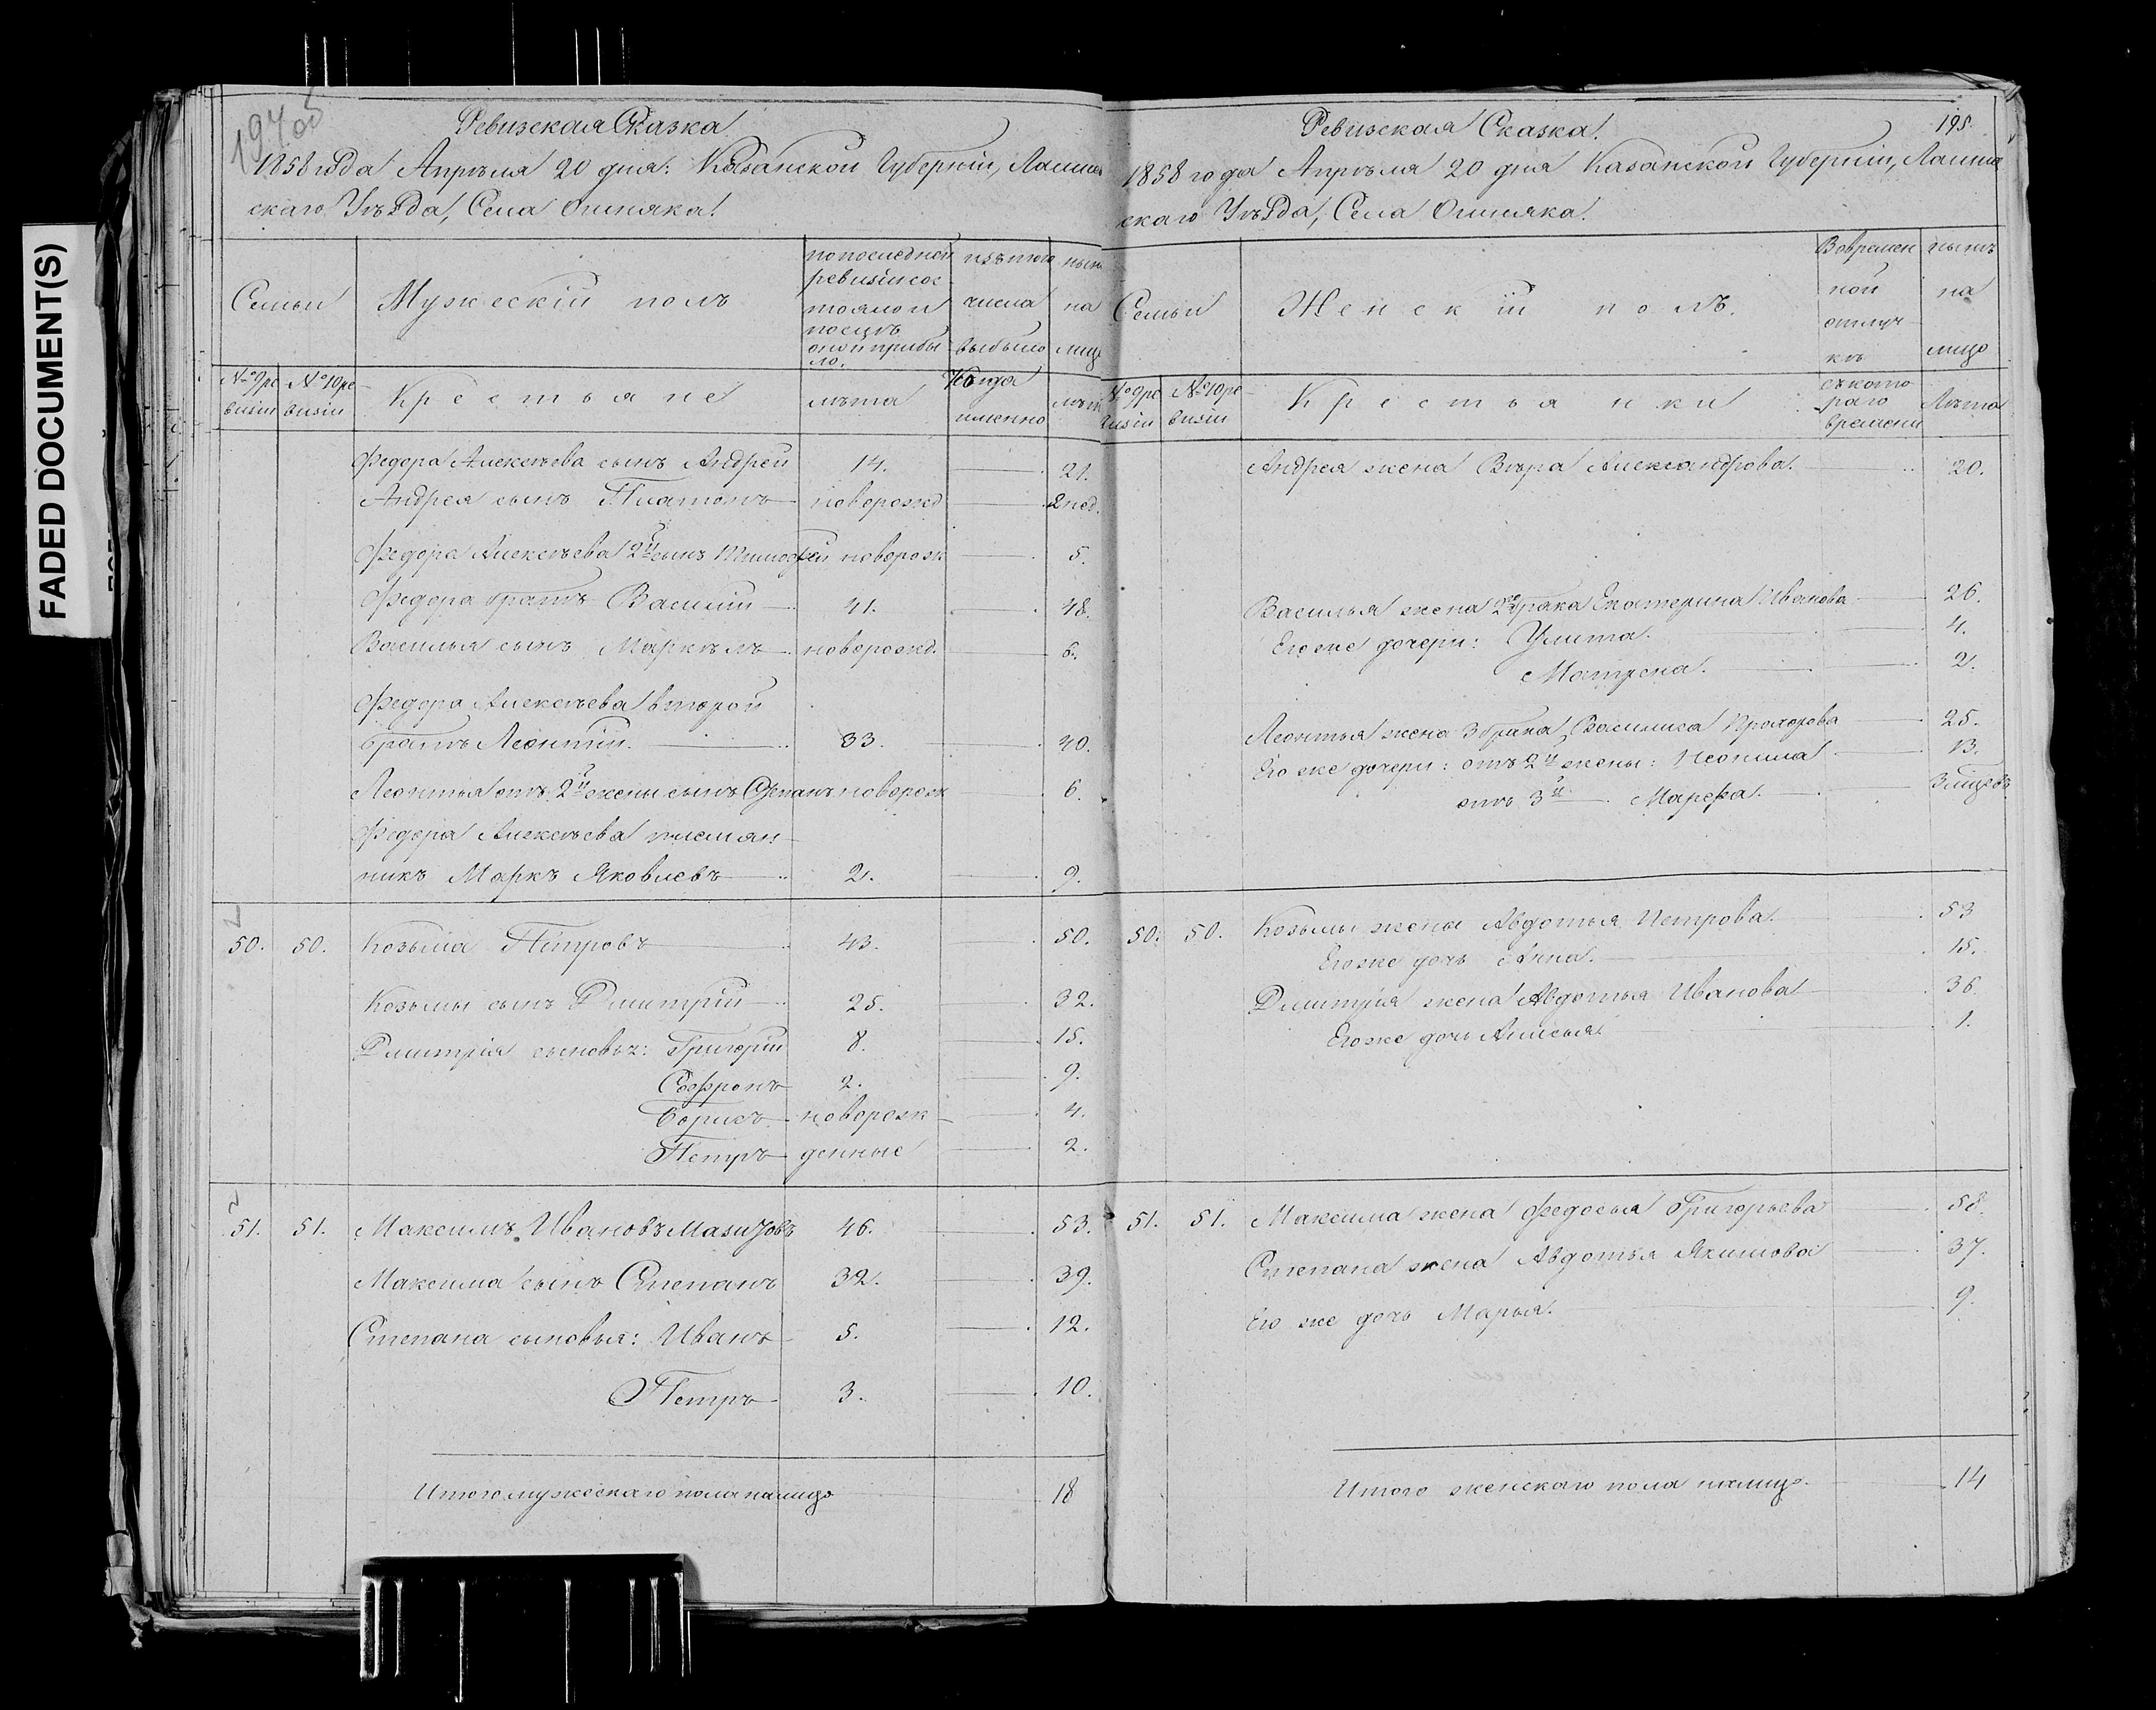 FADED DOCUMENT(S)
194 об
Ревизская Сказка.
1858 года Апрѣля 20 дня: Казанской Губерніи, Лаишев
скаго Уѣзда, Села Ошняка.
Семьи
Мужескій полъ
по последней
ревизіи сос
тояло и
послѣ
оной прибы
ло.
изъ того
числа
выбыло
ныне
на
лице
№ 9 ре
визіи
№ 10 ре
визіи
Крестьяне
лѣта
Когда
именно
лѣта
Федора Алексѣева сынъ Андрей 14. 21.
Андрея сынъ Платонъ новорожд 2 нед.
Федора Алексѣева 2й сынъ Тимофей новорож 5.
Федора братъ Василій 41. 48.
Василья сынъ Маркѣлъ новорожд. 6.
Федора Алексѣева второй
братъ Леонтій. 33. 40.
Леонтья отъ 2й жены сынъ Степанъ новорож 6.
Федора Алексѣева племян
никъ Маркъ Яковлевъ 2. 9.
50. 50. Козьма Петровъ 43. 50.
Козьмы сынъ Дмитрій 25. 32.
Дмитрія сыновья: Григорій 8. 15.
Софронъ 2. 9.
Борисъ новорож 4.
Петръ денные 2.
51. 51. Максимъ Ивановъ Мазизовъ 46. 53.
Максима сынъ Степанъ 32. 39.
Степана сыновья: Иванъ 5. 12.
Петръ 3. 10.
Итого мужескаго пола на лицо 18
Ревизская Сказка. 195.
1858 года Апрѣля 20 дня Казанской Губерніи, Лаише
скаго Уѣзда, Села Ошняка.
Семьи
Женскій полъ.
Во времен
ной
отлуч
кѣ
на
лицо
№ 9 ре
визіи
№ 10 ре
визіи
Крестьянки
съ кото
раго
времени
Лѣта
Андрея жена Вѣра Александрова. 20.
Василья жена 2го брака Екатерина Иванова 26.
Его же дочери: Улита. 4.
Матрена. 2.
Леонтья жена 3 брака Василиса Прохорова 25.
Его же дочери: отъ 2й жены: Неонила 13.
отъ 3й Марфа. 3 мѣсяцовъ
50. 50. Козьмы жена Авдотья Петрова. 53
Его же дочь Анна. 15.
Дмитрія жена Авдотья Иванова 36
Его же дочь Анисья. 1.
51. 51. Максима жена Федосья Григорьева 58.
Степана жена Авдотья Якимова 37.
Его же дочь Марья. 9.
Итого женскаго пола налицо. 14